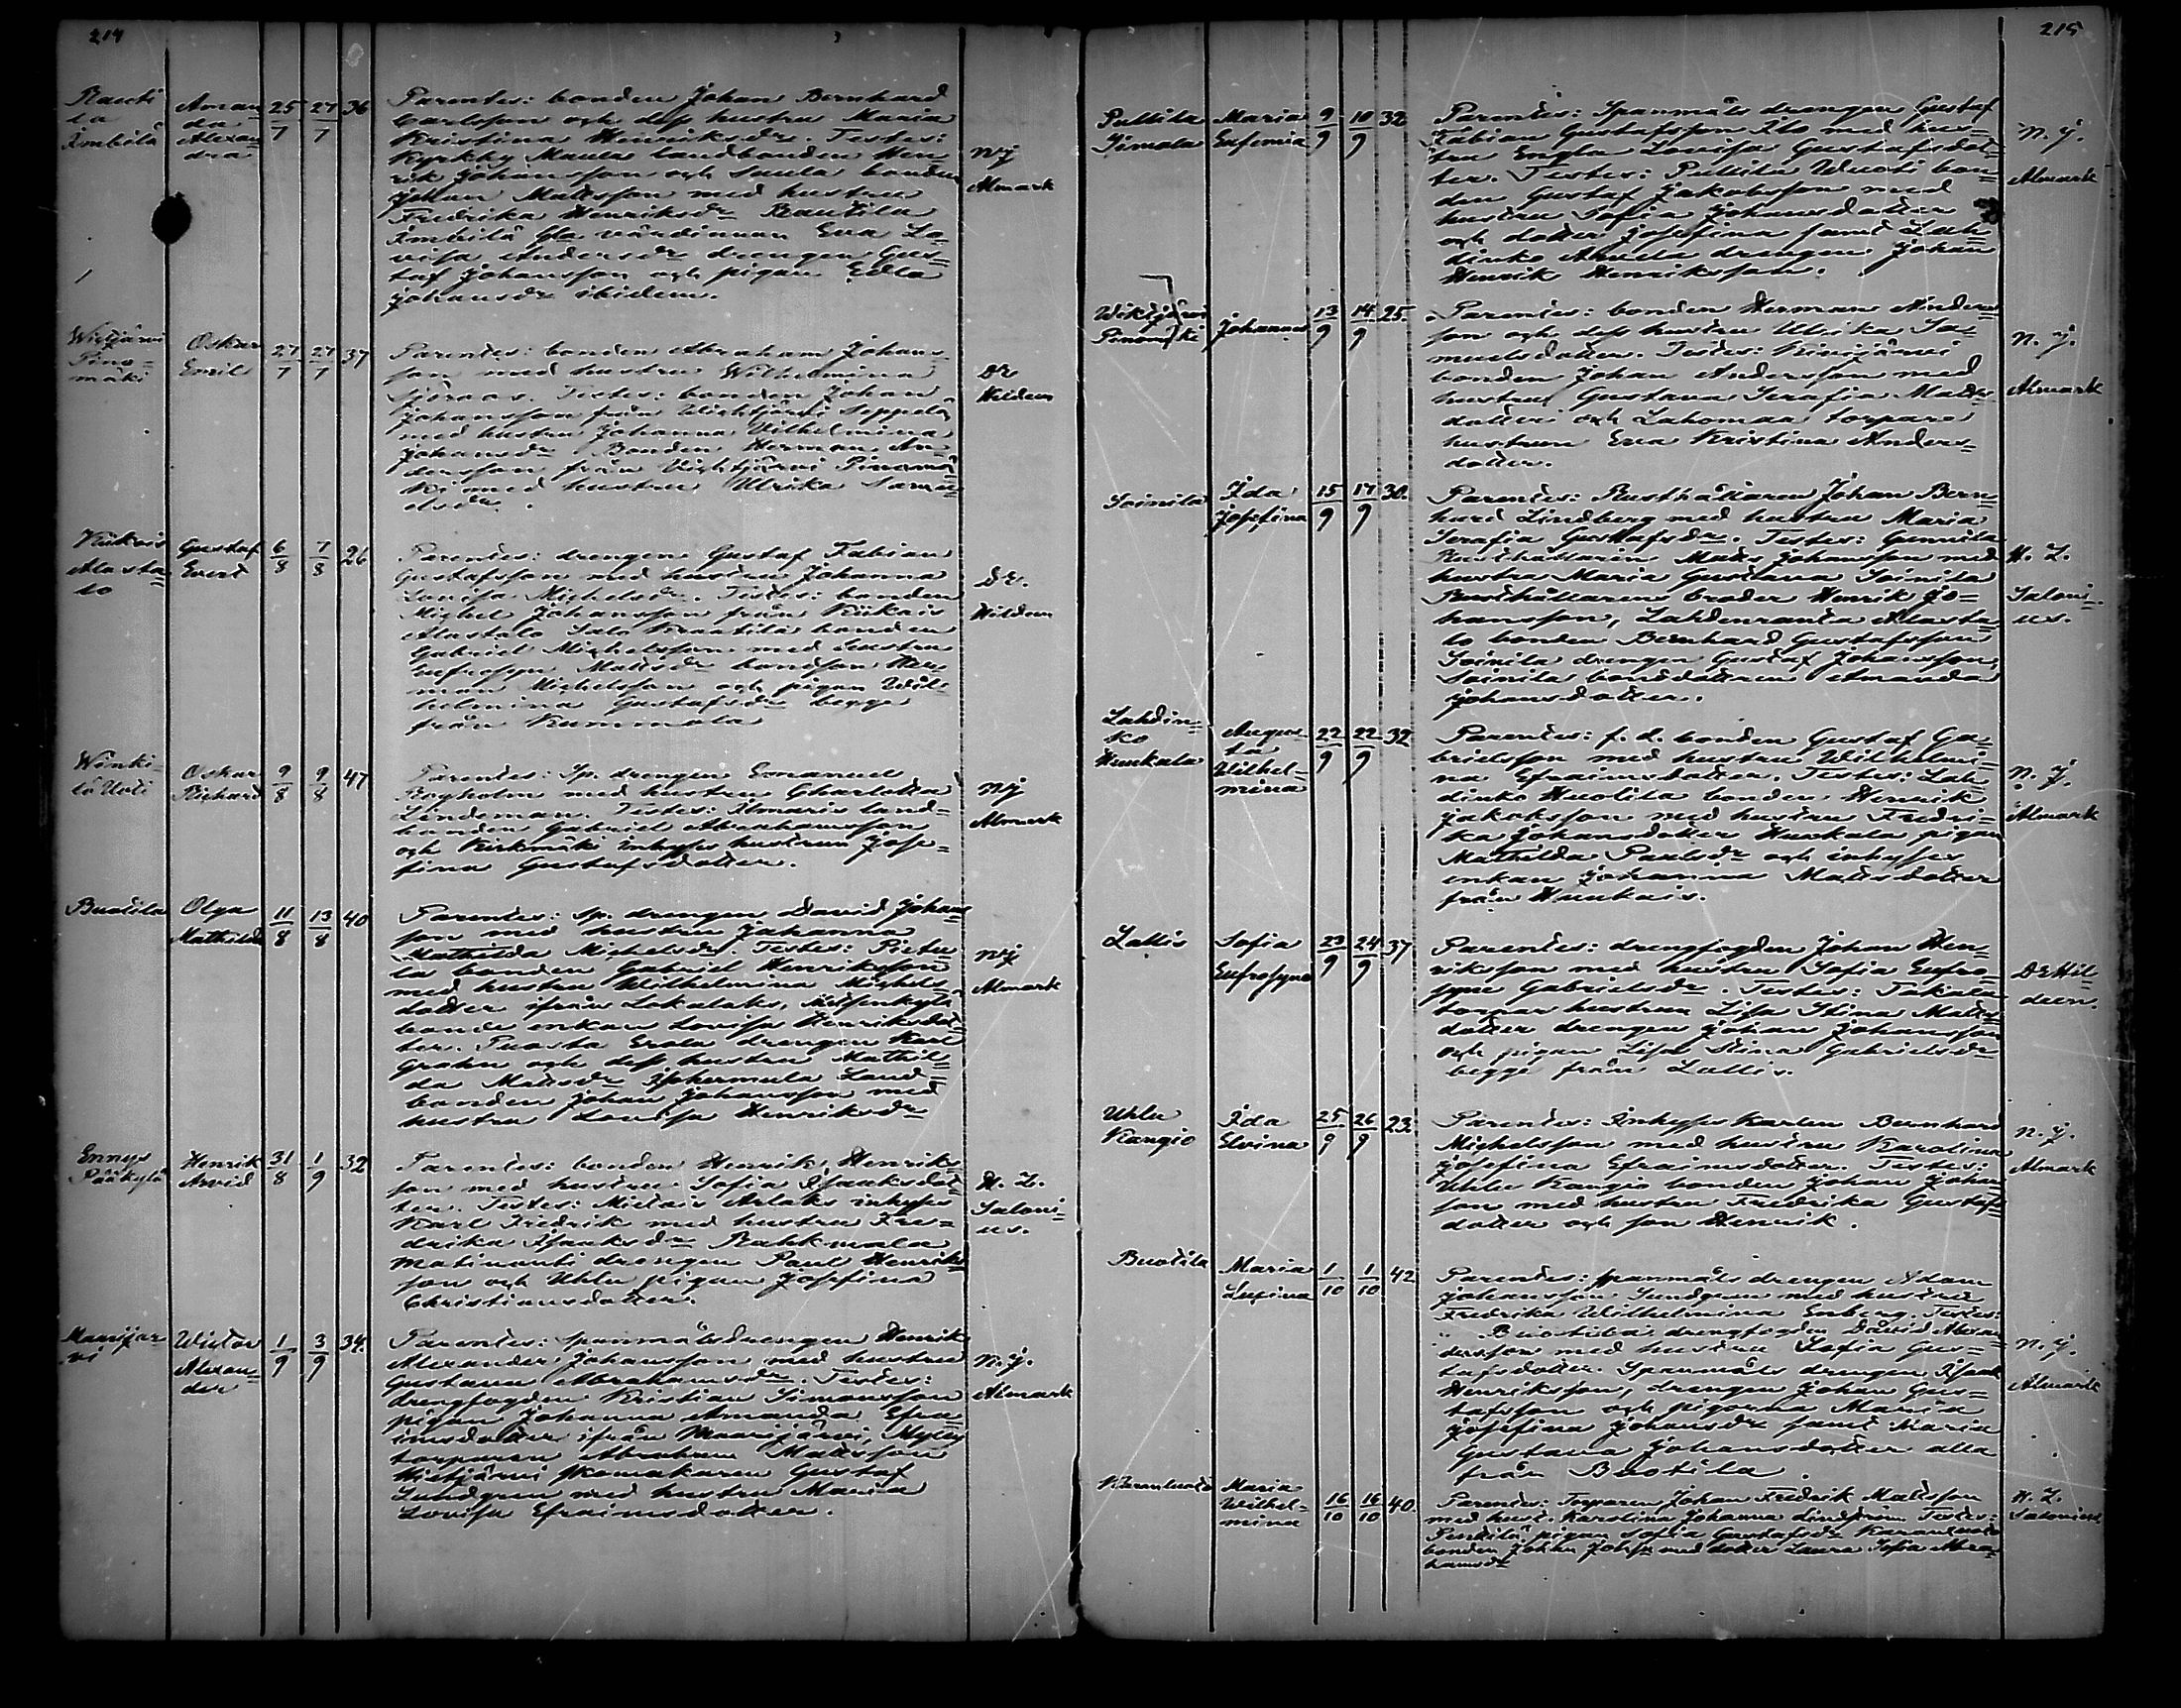 214
Rauti
la
Imbilä
Aman
da
Alexan
dra
25/7 27/7 36
Parentes: bonden Johan Bernhard
Carlsson och dess hustru Maria
Kristina Henriksdr. Testes:
Kyrkby Maula landbonden Hen
rik Johansson och Saula bonden
Johan Mattsson med hustru
Fredrika Henriksdr Rautila
Imbilä gla värdinnan Eva Lo
visa Andersdr drengen Gus=
taf Johansson och pigan Edla
Johansdr ibidem.
NJ
Almark
Pino=
mäki
Oskar
Emil
27/7 27/7 37
Parentes: bonden Abraham Johans
son med hustru Wilhelmina
Sjöroos. Testes: bonden Johan
Johansson från Wichtjärvi Seppelä
med hustru Johanna Wilhelmina
Johansdr Bonden Herman An
dersson från Vichtjärvi Pinomä
ki med hustru Ulrika Samu
elsdr.
DE
Hildeen
Kiikois
Alasta=
lo
Gustaf
Evert
6/8 7/8 26
Parentes: drengen Gustaf Fabian
Gustafsson med hustru Johanna
Lovisa Michelsdr. Testes: bonden
Michel Johansson från Kiikois
Alastalo Salo Krautila bonden
Gabriel Michelsson med hustru
Eufrosyn Mattsdr bondson Her
man Michelsson och pigan Wil
helmina Gustafsdr begge
från Kummola
DE.
Hildeen
Oskar
Richard
9/8 9/8 47
Parentes: Sp. drengen Emanuel
Bogholm med hustru Charlotta
Lindeman. Testes: Ilmaris land=
bonden Gabriel Abrahamsson
och Kirkmäki inhyses hustrun Jose=
fina Gustafsdotter.
NJ
Almark
Buotila
Olga
Mathilda
11/8 13/8 40
Parentes: sp. drengen David Johans
son med hustru Johanna
Mathilda Michelsdr. Testes: Pietu
la bonden Gabriel Henriksson
med hustru Wilhelmina Michels
dotter ifrån Lokalaks,
bonde enkan Lovisa Henriksdot=
ter. Puosta Erola drengen Karl
Grahn och dess hustru Mathil
da Mattsdr Land=
bonden Johan Johansson med
hustru Lovisa Henriksdr
NJ
Almark
Ennys
Pääkylä
Henrik
Arvid
31/8 1/9 32
Parentes: bonden Henrik Henriks
son med hustru Sofia Isaaksdot=
ter. Testes: Mietois Arlaks inhyses
Karl Fredrik med hustru Fre=
drika Isaaksdr Rahkmala
Matinanti drengen Paul Henriks
son och Uhlu pigan Josefina
Christiansdotter.
H. Z.
Saloni=
us.
Maarijär=
vi
Wictor
Alexan=
der
1/9 3/9 34.
Parentes: spanmålsdrengen Henrik
Alexander Johansson med hustru
Gustava Abrahamsdr. Testes:
drengfogden Kristian Simonsson
pigan Johanna Amanda Efra=
imsdotter ifrån Maarijärvi,
torparen Abraham Mattsson
skomakaren Gustaf
Lundgren med hustru Maria
Lovisa Efraimsdotter.
N. J.
Almark
215
Puttila
Simola
Maria
Eufemia
9/9 10/9 32
Parentes: Spanmåls drengen Gustaf
Fabian Gustafsson Ilo med hus=
tru Engla Lovisa Gustafsdot=
ter. Testes: Puttila Wuoti bon=
den Gustaf Jakobsson med
hustru Sofia Johansdotter
och dotter Josefina samt Lah=
dinko Anvela drengen Johan
Henrik Henriksson.
N. J.
Almark
Wiktjärvi
Pinomäki
Johannes
13/9 14/9 25.
Parentes: bonden Herman Anders
son och dess hustru Ulrika Sa=
muelsdotter. Testes: Kivijärvi
bonden Johan Andersson med
hustru Gustava Serafia Matts
dotter och Lahomaa torpare
hustrun Eva Kristina Anders=
dotter.
N. J.
Almark
Soinila
Ida
Josefina
15/9 17/9 30.
Parentes: Rusthållaren Johan Bern=
hard Lindberg med hustru Maria
Serafia Gustafsdr. Testes: Gunnila
Rusthållaren Matts Johansson med
hustru Maria Gustava Soinila
Rusthållaren broder Henrik Jo=
hansson, Lahdenranta Alasta=
lo bonden Bernhard Gustafsson
Soinila drengen Gustaf Johansson,
Soinila bonddottren Amanda
Johansdotter.
H. Z.
Saloni=
us.
Lahdin=
ko
Hunkala
Augus=
ta
Wilhel=
mina
22/9 22/9 32
Parentes: f. d. bonden Gustaf Ga=
brielsson med hustru Wilhelmi=
na Efraimsdotter. Testes: Lah
dinko Huolila bonden Henrik
Jakobsson med hustru Fredri=
ka Johansdotter Hunkala pigan
Mathilda Paulsdr och inhyses
enkan Johanna Mattsdotter
från Hunkais.
N. J.
Almark
Lallis
Sofia
Eufrosyne
23/9 24/9 37
Parentes: drengfogden Johan Hen=
riksson med hustru Sofia Eufro=
syne Gabrielsdr. Testes:
torpar hustrun Lisa Stina Matts
dotter drengen Johan Johansson
och pigan Lisa Stina Gabrielsdr
begge från Lallis.
DE Hil=
deen.
Uhlu
Kangio
Ida
Elvina
25/9 26/9 23.
Parentes: Inhyses karlen Bernhard
Michelsson med hustru Karolina
Josefina Efraimsdotter. Testes:
Uhlu Kangio bonden Johan Johans
son med hustru Fredrika Gustafs
dotter och son Henrik.
N. J.
Almark
Buotila
Maria
Lusina
1/10 1/10 42
Parentes: spanmåls drengen Adam
Johansson Sundgren med hustru
Fredrika Wilhelmina Enberg. Testes:
Buotila drengfogden David Alexan
dersson med hustru Sofia Gus=
tafsdotter. Spanmåls drengen Isaak
Henriksson, drengen Johan Gus=
tafsson och pigorna Maria
Josefina Johansdr samt Maria
Gustava Johansdotter alla
från Buotila.
N. J.
Almark
Maria
Wilhel=
mina
16/10 16/10 40.
Parentes: Torparen Johan Fredrik Mattsson
med hust. Karolina Johanna Lindström Testes:
Penttilä pigan Sofia Gustafsdr
bonden Johan Johss med dotter Laura Sofia Abra=
hamsdr
H. Z.
Salonius